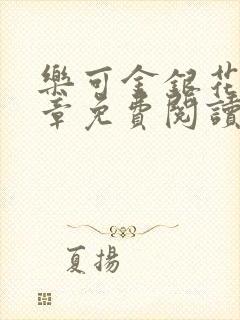 樂可金銀花
章免費閱讀
夏揚